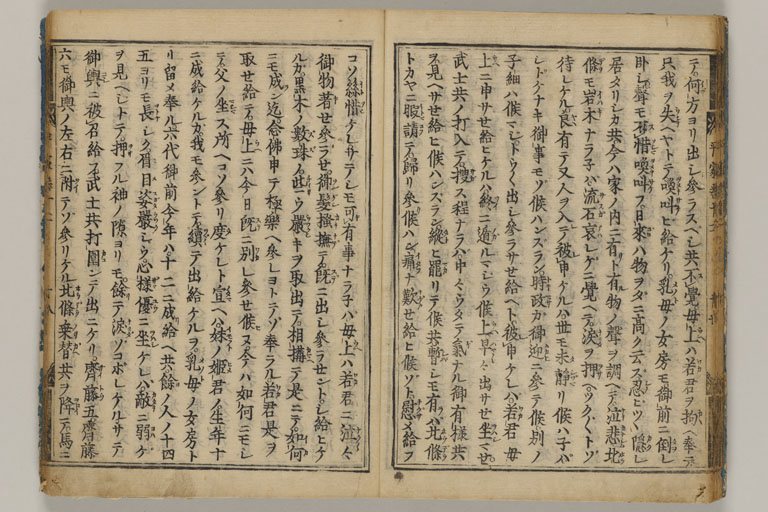 テ何方ヨリ出シ參ラスヘシ共不覺母上ハ若君ヲ拘ヘ奉テ
只我ヲ失ヘヤトテ喚叫ヒ給ケリ乳母ノ女房モ御前ニ倒レ
臥シ聲モ不惜喚叫フ日來ハ物ヲタニ高クテス忍ヒツヽ隱レ
居タリシカ共今ハ家ノ内ニ有ト有物ノ聲ヲ調ヘテ泣悲北
條モ岩木ナラ子ハ流石哀レケニ覺ヘテ涙ヲ押ヘツク〳〵トソ
待レケル良有テ又人ヲ入テ被申ケルハ世モ未靜リ候ハ子ハ
シトケナキ御事モソ候ハンスラン時政カ御迎ニ參テ候別ノ
子細ハ候マシトウ〳〵出シ參ラサセ給ヘト被申ケレハ若君母
上ニ申サセ給ヒケルハ終ニ遁ルマシウ候上ハ早々出サセ坐セ
武士共ノ打入テ搜ス程ナラハ中々ウタテ氣ナル御有樣共
ヲ見ヘサセ給ヒ候ハンスラン縱ヒ罷リテ候共暫シモ有ハ北條
トカヤニ暇請テ歸リ參候ハン痛ナ歎セ給ヒ候ソト慰メ給フ
コソ糸惜ケレサテシモ可有事ナラ子ハ母上ハ若君ニ泣々
御物著セ參ラセ御髮搔撫テ既ニ出シ參ラセントシ給ヒケ
ルカ黒木ノ數珠ノ世ウ嚴キヲ取出テ相搆テ是ニテ如何
ニモ成ン迄念佛申テ極樂ヘ參レヨトテソ奉ラル若君是ヲ
取セ給テ母上ニハ今日既ニ別レ參セ候ヌ今ハ如何ニモシ
テ父ノ坐ス所ヘコソ參リ度ケレト宣ヘハ妹ノ姫君ノ生年十
ニ成給ケルカ我モ參ントテ續テ出給ケルヲ乳母ノ女房ト
リ留メ奉ル六代御前今年ハ十二ニ成給ヘ共餘ノ人ノ十四
五ヨリモ長シク眉目姿嚴シウ心樣優ニ坐ケレハ敵ニ弱ケ
ヲ見ヘシトテ押フル袖ノ隙ヨリモ餘テ涙ソコホレケルサテ
御輿ニ被召給フ武士共打圍ンテソ出ニケリ齊藤五齊藤
六モ御輿ノ左右ニ附テソ參リケル北條乘替共ヲ降テ馬ニ